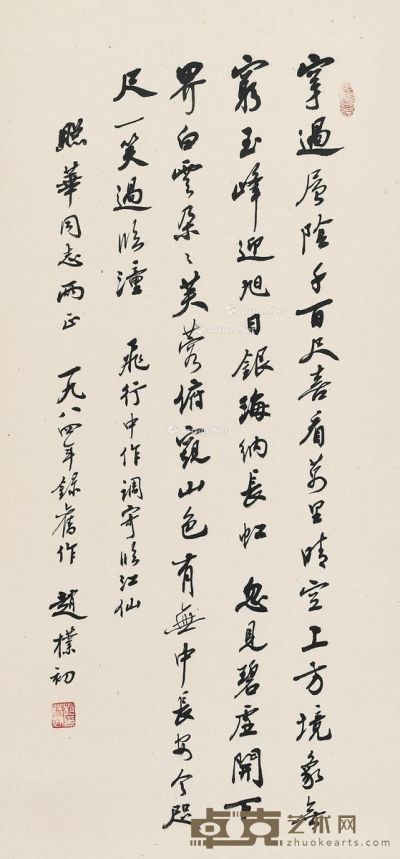 穿過層陰千百尺喜看萬里晴空上方境象無
窮玉峰迎旭日銀海納長虹 忽見碧虛開下
界白雲朵〻芙蓉俯觀山色有無中長安今咫
尺一笑過臨潼 飛行中作調寄臨江仙
照華同志兩正 一九八四年錄舊作 趙樸初
卓克艺术网
www.zhuokearts.com